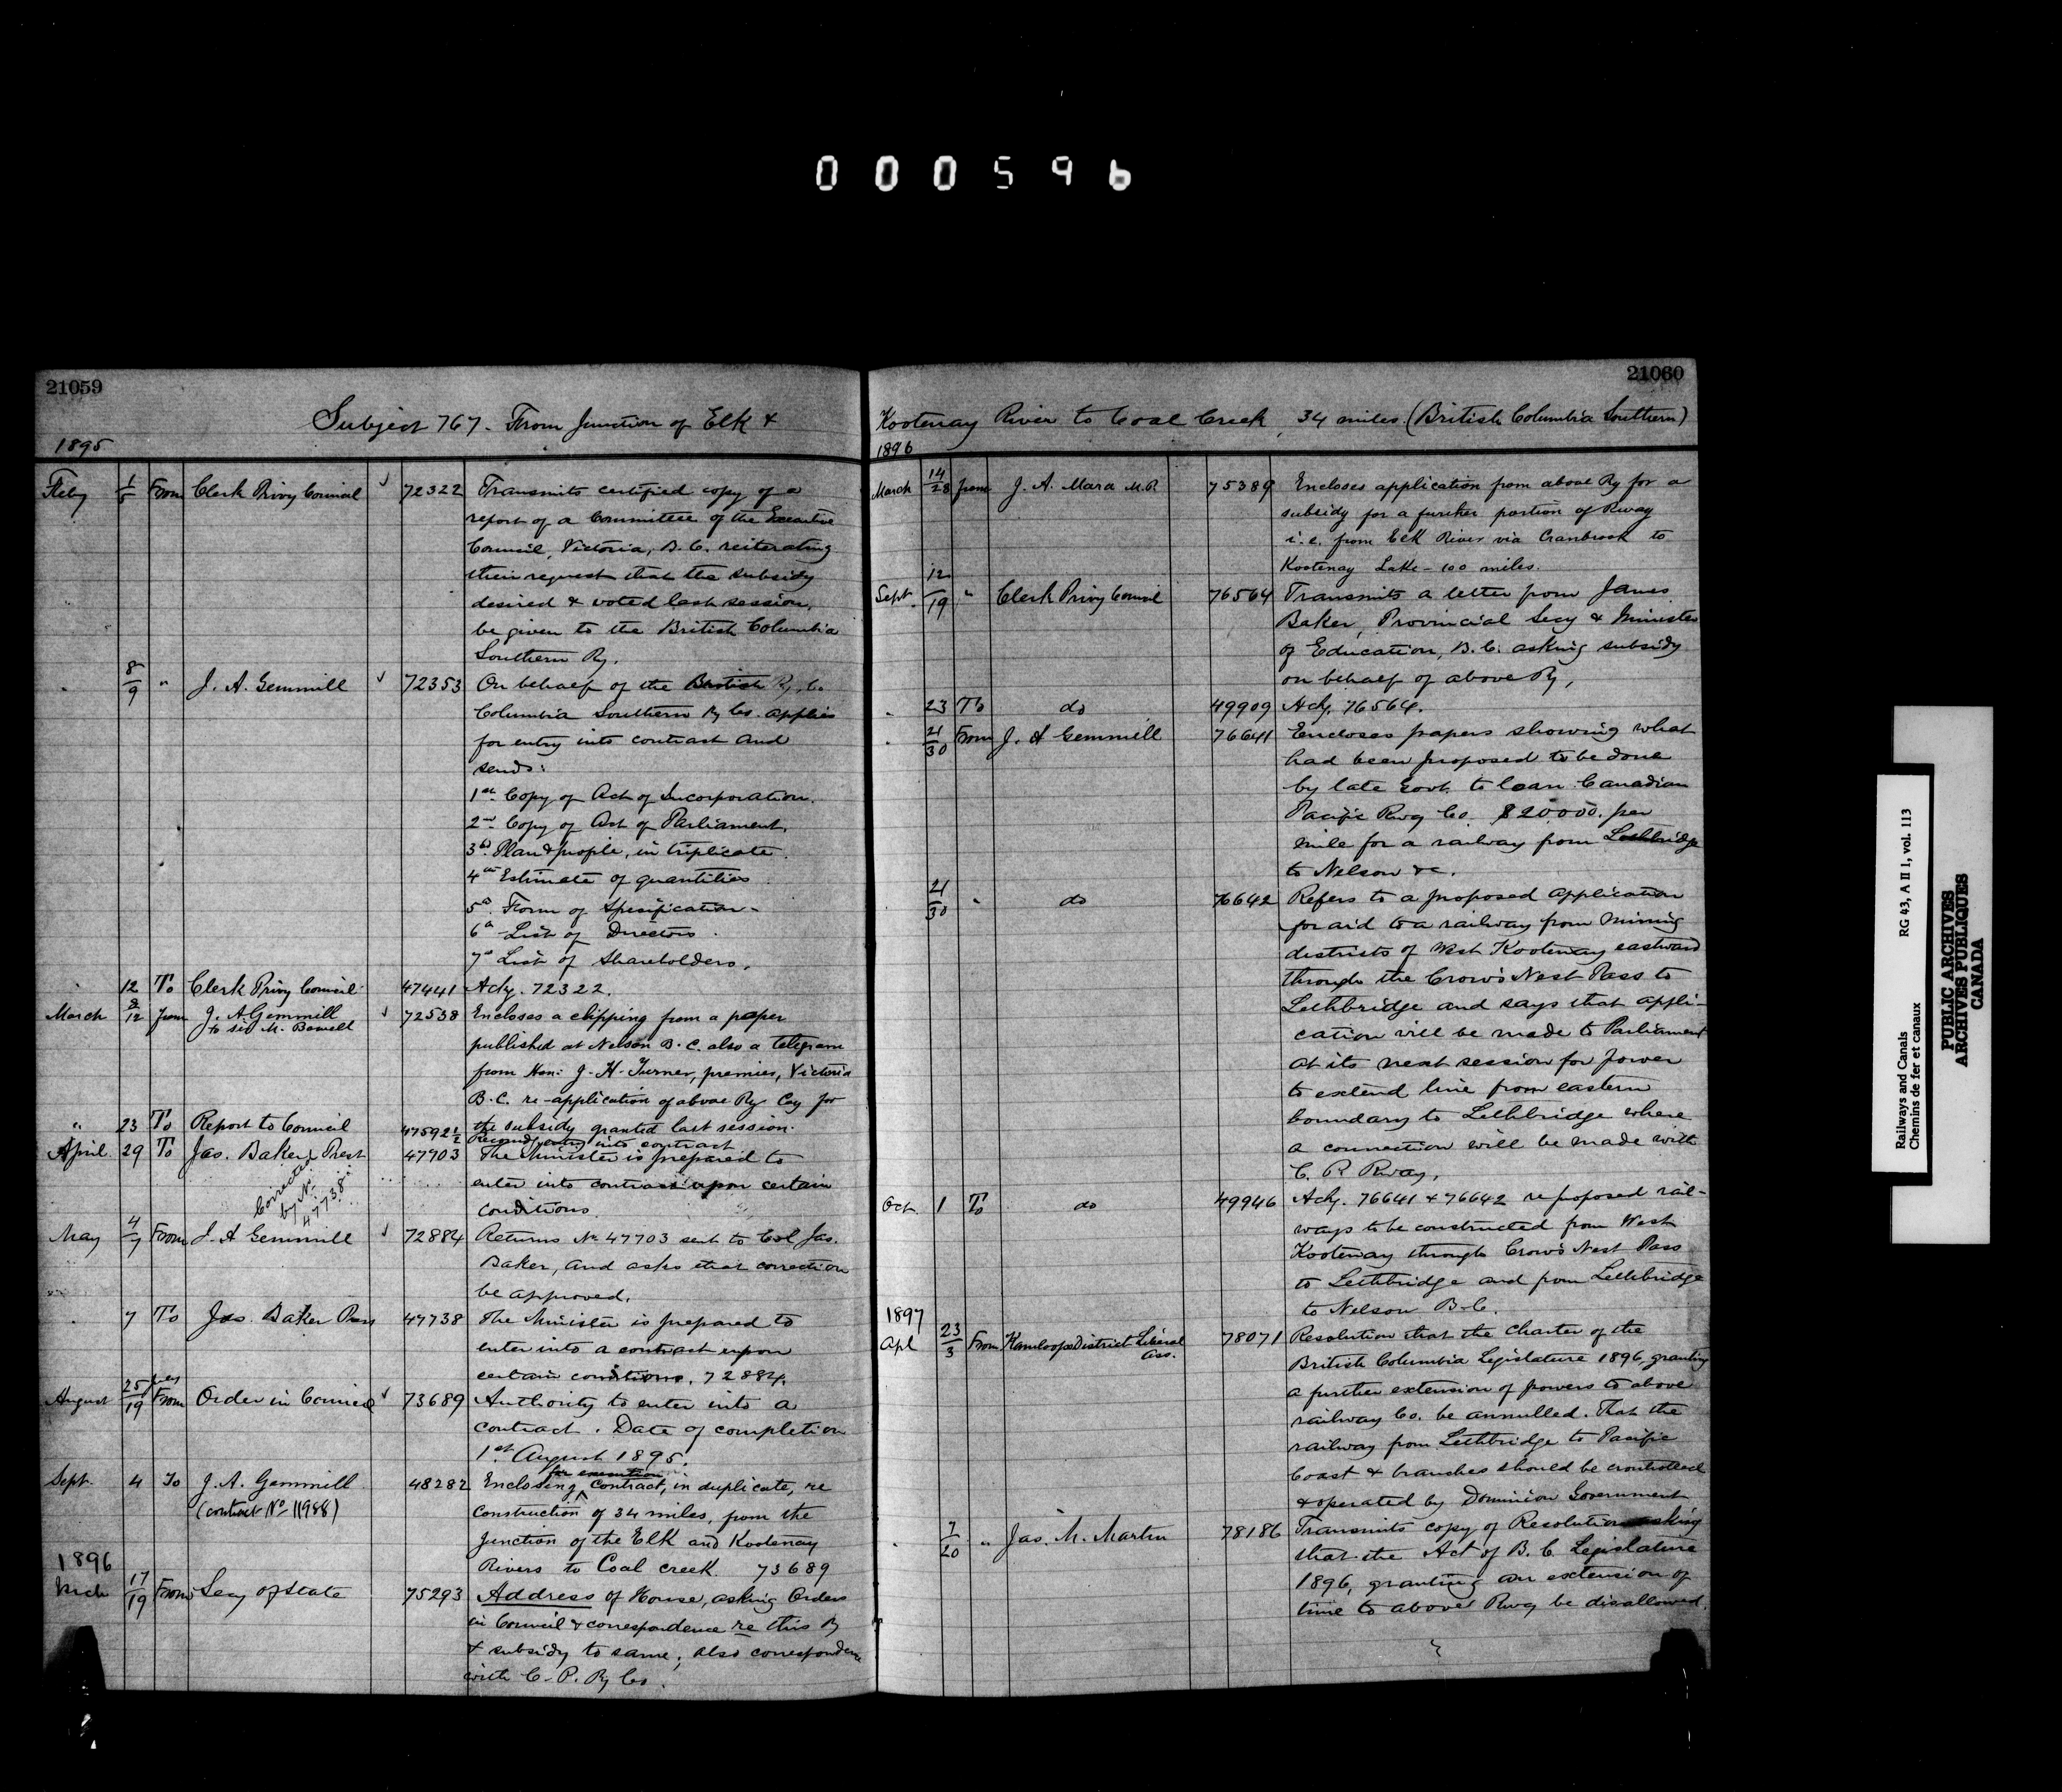 000596
21059
Subject 767. From Junction of Elk &
1895
Feby 1/5 From Clerk Privy Council √ 72322 Transmits certified copy of a
report of a Committee of the Executive
Council, Victoria, B.C. reiterating
their request that the subsidy
desired & voted last session,
be given to the British Columbia
Southern Ry.
" 8/9 " J. A. Gemmill √ 72353 On behalf of the British Ry. Co.
Columbia Southern Ry Co. applies
for entry into contract and
sends:
1st Copy of Act of Incorporation.
2nd Copy of Act of Parliament.
3rd Plan & profile, in triplicate.
4th Estimate of quantities
5th Form of Specification -
6th List of Directors.
7th List of Shareholders.
" 12 To Clerk Privy Council 47441 Ackg. 72322.
March 9/12 from J. A. Gemmill √ 72538 Encloses a clipping from a paper
to Sir M. Bowell
published at Nelson B.C. also a telegram
from Hon: J. H. Turner, premier, Victoria
B.C. re-application of above Ry Coy for
the subsidy granted last session.
" 23 To Report to Council 47592 1/2 Recomdg entry into contract
April 29 To Jas. Baker, Prest 47703 The Minister is prepared to
enter into contract upon certain
conditions.
Corrected
by No.
47738
May 4/7 From J. A Gemmill √ 72884 Returns No 47703 sent to Col Jas.
Baker, and asks that correction
be approved.
" 7 To Jas. Baker Pres 47738 The Minister is prepared to
enter into a contract upon
certain conditions. 72884.
August 25/19 From Order in Council √ 73689 Authority to enter into a
contract. Date of completion
1st August 1895.
for execution
Sept. 4 To J. A. Gemmill 48282 Enclosing contract, in duplicate, re
(contract No 11988)
construction of 34 miles, from the
Junction of the Elk and Kootenay
Rivers to Coal creek. 73689
1896
Mch 17/19 From Secy of State 75293 Address of House, asking Orders
in Council & correspondence re this Ry
& subsidy to same; also correspondence
with C.P. Ry Co.
21060
Kootenay River to Coal Creek, 34 miles. (British Columbia Southern)
1896
March 14/28 from J. A. Mara M.P. 75389 Encloses application from above Ry for a
subsidy for a further portion of Rway
i.e. from Elk River via Cranbrook to
Kootenay Lake - 100 miles.
Sept. 12/19 " Clerk Privy Council 76564 Transmits a letter from James
Baker, Provincial Secy & Minister
of Education, B.C. asking subsidy
on behalf of above Ry,
" 23 To do 49909 Ackg. 76564.
" 21/30 From J. A Gemmill 76641 Encloses papers showing what
had been proposed to be done
by late Govt. to loan Canadian
Pacific Rwy Co. $20000. per
mile for a railway from Lethbridge
to Nelson &c.
21/30 " do 76642 Refers to a proposed application
for aid to a railway from mining
districts of West Kootenay eastward
through the Crow's Nest Pass to
Lethbridge and says that appli-
cation will be made to Parliament
at its next session for power
to extend line from eastern
boundary to Lethbridge where
a connection will be made with
C. P. Rway,
Oct. 1 To do 49946 Ackg. 76641 & 76642 re proposed rail-
ways to be constructed from West
Kootenay through Crow's Nest Pass
to Lethbridge and from Lethbridge
to Nelson B.C.
1897
Apl 23/3 From Kamloops District Liberal 78071 Resolution that the Charter of the
Ass.
British Columbia Legislature 1896, granting
a further extension of powers to above
railway Co. be annulled. That the
railway from Lethbridge to Pacific
Coast & branches should be controlled
& operated by Dominion Government
" 7/20 " Jas. M. Martin 78186 Transmits copy of Resolution asking
that the Act of B.C. Legislature
1896, granting an extension of
time to above Rwy be disallowed.
Railways and Canals RG 43, A II 1, vol. 113
Chemins de fer et canaux
PUBLIC ARCHIVES
ARCHIVES PUBLIQUES
CANADA